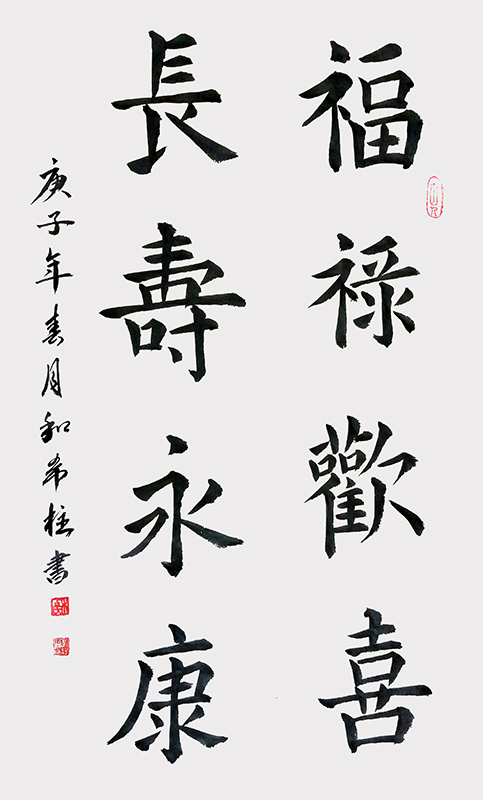 福祿歡喜
長壽永康
庚子年春月和希柱書